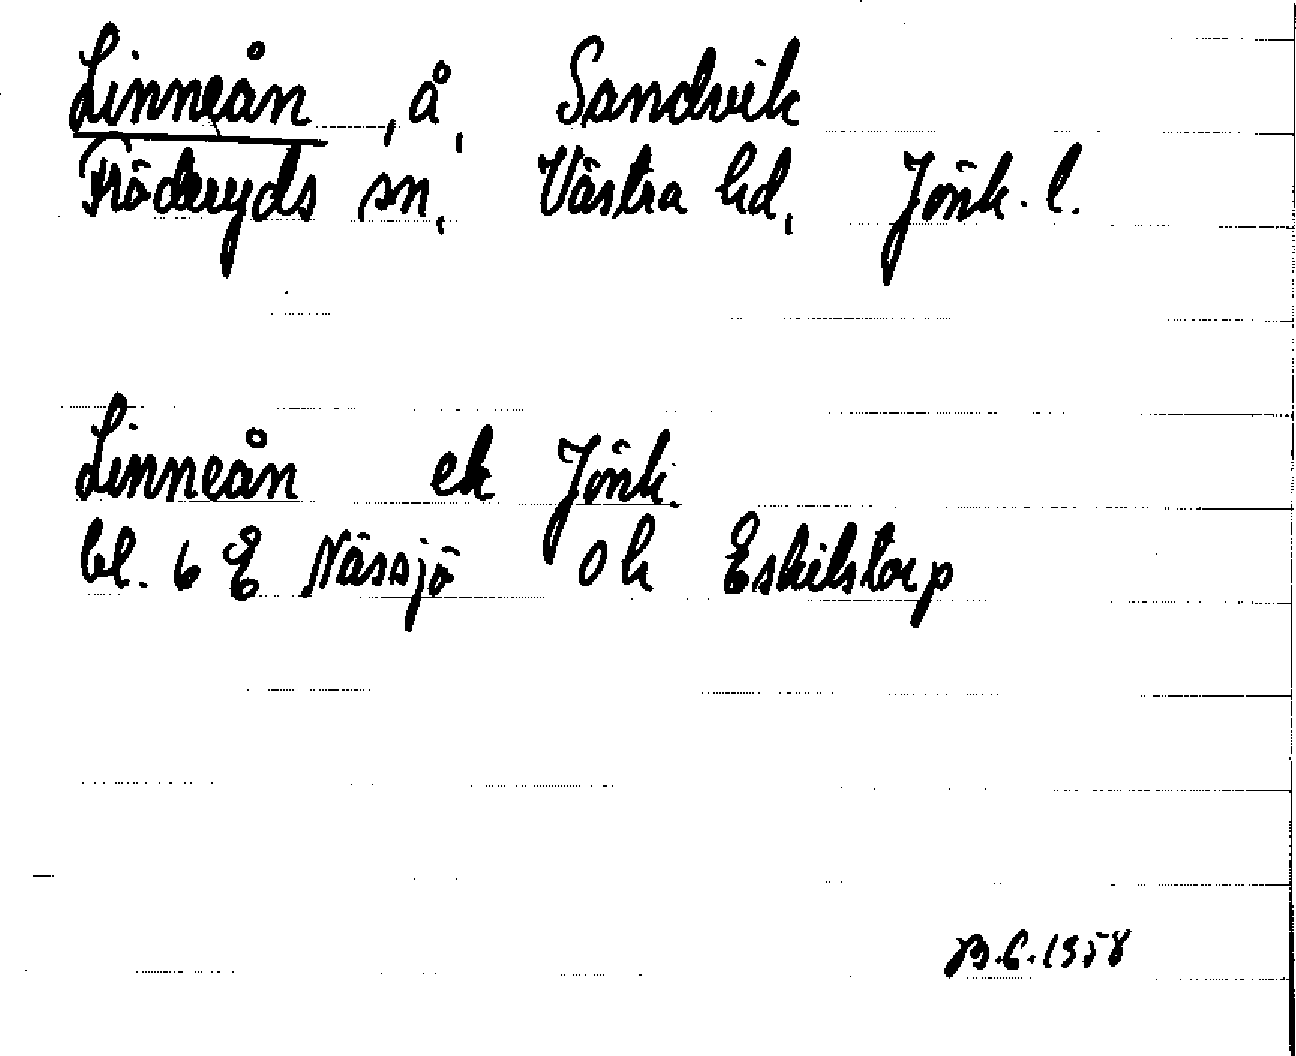 Linneån, å, Sandvik
Fröderyds sn, Västra hd, Jönk. l.
Linneån ek Jönk.
bl. 6 E Nässjö ok Eskilstorp
B.C. 1958